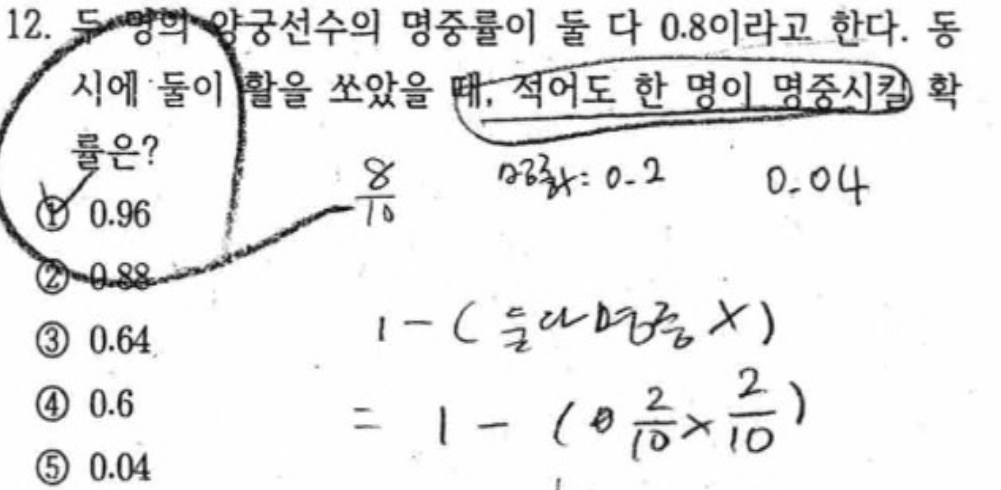 12. 두 명의 양궁선수의 명중률이 둘 다 0.8이라고 한다. 동
시에 둘이 활을 쏘았을 때, 적어도 한 명이 명중시킬 확
률은?
① 0.96
② 0.88
③ 0.64
④ 0.6
⑤ 0.04
8/10
명중x: 0.2 0.04
1 - ( 둘다 명중 X )
= 1 - ( 2/10 × 2/10 )